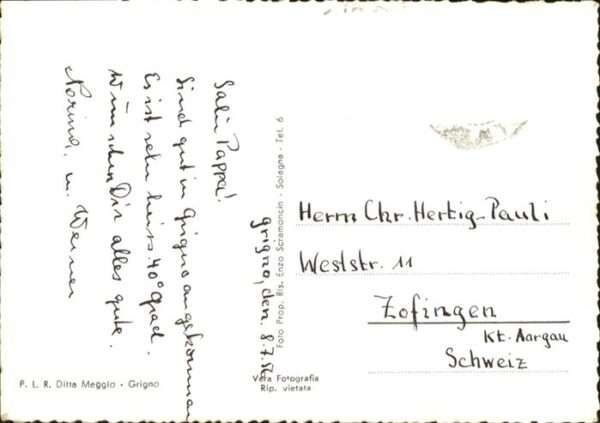 Grigno, den. 8.7.
Salü Pappa!
Sind gut in Grigno angekommen
Es ist sehr heiss. 40° Grad.
Wünschen Dir alles gute.
Norina. u. Werner
Foto Prop. Ris. Enzo Scremoncin - Solagna - Tel. 6
Herrn Chr. Hertig-Pauli
Weststr. 11
Zofingen
Kt. Aargau
Schweiz
P. L. R. Ditta Meggio - Grigno
Vera Fotografia
Rip. vietata